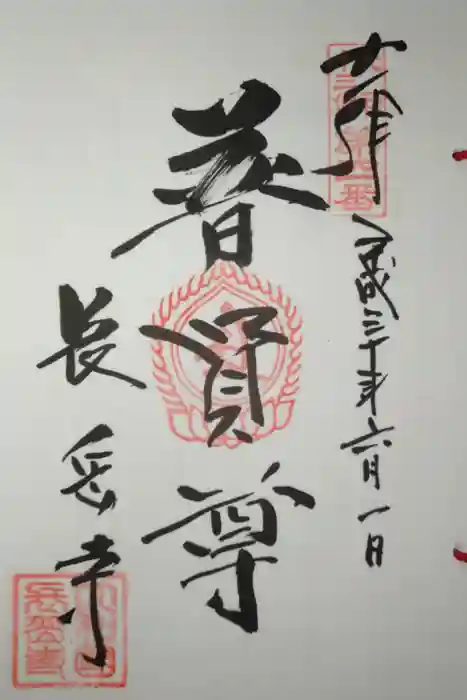 奉拝
平成三十年六月一日
普賢尊
長岳寺